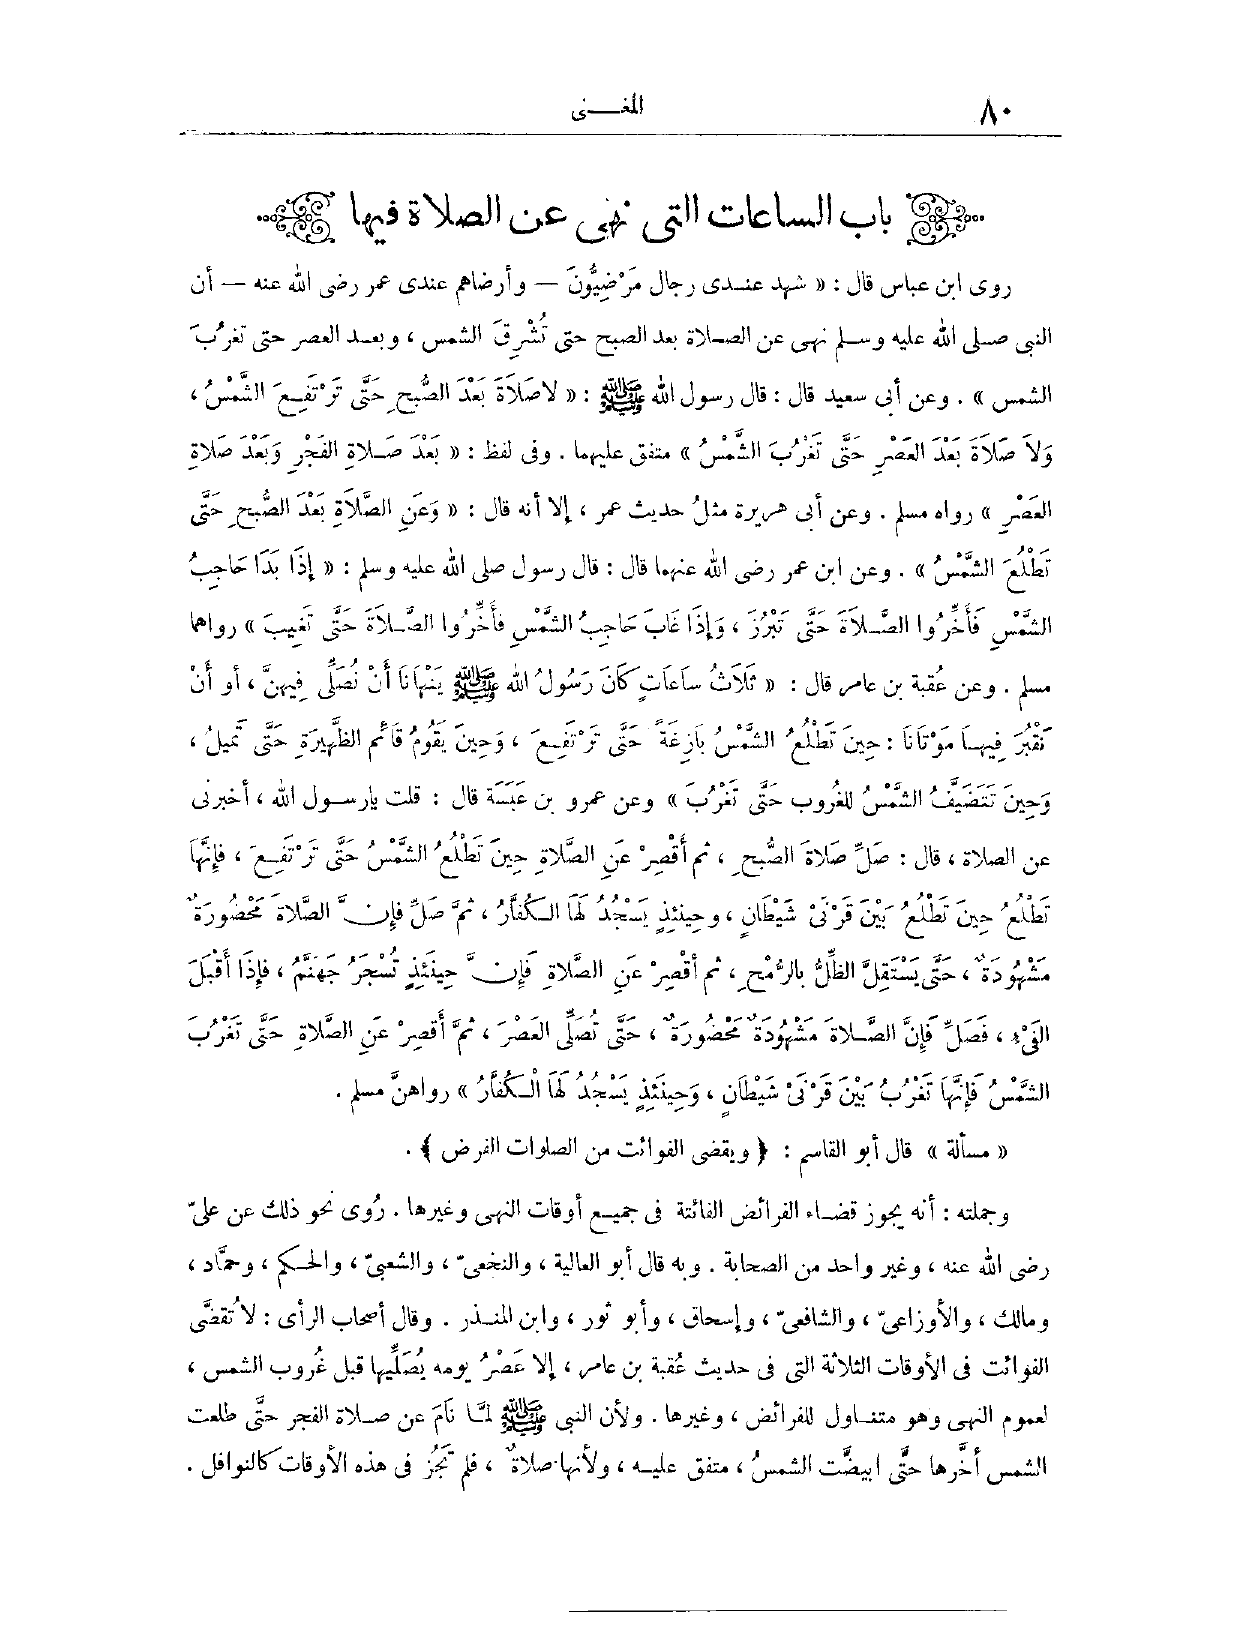 ٨٠
المغـــنى
باب الساعات التى نهى عن الصلاة فيها
روى ابن عباس قال : « شهد عنـدى رجال مَرْضِيُّونَ — وأرضاهم عندى عمر رضى الله عنه — أن
النبى صـلى الله عليه وسـلم نهـى عن الصـلاة بعد الصبح حتى تُشْرِقَ الشمس ، وبعـد العصر حتى تَغرُبَ
الشمس » . وعن أبى سعيد قال : قال رسول الله ﷺ : « لاَصَلاَةَ بَعْدَ الصُّبحِ حَتَّى تَرْتَفِـعَ الشَّمْسُ ،
وَلاَ صَلاَةَ بَعْدَ العَصْرِ حَتَّى تَغْرُبَ الشَّمْسُ » متفق عليهما . وفى لفظ : « بَعْدَ صَـلاةِ الفَجْرِ وَبَعْدَ صَلاةِ
العَصْرِ » رواه مسلم . وعن أبى هريرة مثلُ حديث عمر ، إلا أنه قال : « وَعَنِ الصَّلاَةِ بَعْدَ الصُّبحِ حَتَّى
تَطْلُعَ الشَّمْسُ » . وعن ابن عمر رضى الله عنهما قال : قال رسول صلى الله عليه وسلم : « إِذَا بَدَا حَاجِبُ
الشَّمْسِ فَأَخِّرُوا الصَّـلاَةَ حَتَّى تَبْرُزَ ، وَإِذَا غَابَ حَاجِبُ الشَّمْسِ فَأَخِّرُوا الصَّـلاَةَ حَتَّى تَغيبَ » رواها
مسلم . وعن عُقبة بن عامر قال : « ثَلَاثُ سَاعَاتٍ كَانَ رَسُولُ الله ﷺ يَنْهَانَا أَنْ نُصَلِّى فِيهِنَّ ، أو أَنْ
نَقْبُرَ فِيهـا مَوْتَانَا : حِينَ تَطْلُعُ الشَّمْسُ بَازِغَةً حَتَّى تَرْتَفِـعَ ، وَحِينَ يَقُومُ قَائِم الظَّهِيرَةِ حَتَّى تَمِيلُ ،
وَحِينَ تَتَضَيَّفُ الشَّمْسُ للغُروب حَتَّى تَغْرُبَ » وعن عمرو بن عَبَسَة قال : قلت يارسـول الله ، أخبرنى
عن الصلاة ، قال : صَلِّ صَلاةَ الصُّبحِ ، ثم أَقْصِرْ عَنِ الصَّلاةِ حِينَ تَطْلُعُ الشَّمْسُ حَتَّى تَرْتَفِـعَ ، فَإِنَّهَا
تَطْلُعُ حِينَ تَطْلُعُ بَيْنَ قَرْنَىْ شَيْطَانٍ ، وحِينَئِذٍ يَسْجُدُ لَهَا الـكُفَّارُ ، ثمَّ صَلِّ فإِنَّ الصَّلاةَ مَحْضُورَةٌ
مَشْهُودَةٌ ، حَتَّى يَسْتَقِلَّ الظِّلُّ بالرُّمْحِ ، ثم أَقْصِرْ عَنِ الصَّلاةِ فَإِنَّ حِينَئِذٍ تُسْجَرُ جَهَنَّمُ ، فَإِذَا أَقْبَلَ
الفَىْءِ ، فَصَلِّ فَإِنَّ الصَّـلاةَ مَشْهُودَةٌ مَحْضُورَةٌ ، حَتَّى تُصَلِّى العَصْرَ ، ثمَّ أَقصِرْ عَنِ الصَّلاةِ حَتَّى تَغْرُبَ
الشَّمْسُ فَإِنَّهَا تَغْرُبُ بَيْنَ قَرْنَىْ شَيْطَانٍ ، وَحِينَئِذٍ يَسْجُدُ لَهَا الْـكُفَّارُ » رواهنَّ مسلم .
« مسألة » قال أبو القاسم : ﴿ ويقضى الفوائت من الصلوات الفرض ﴾ .
وجملته : أنه يجوز قضـاء الفرائض الفائتة فى جميـع أوقات النهى وغيرها . رُوى نحو ذلك عن علىّ
رضى الله عنه ، وغير واحد من الصحابة . وبه قال أبو العالية ، والنخعىّ ، والشعبىّ ، والحـكم ، وحمَّاد ،
ومالك ، والأوزاعىّ ، والشافعىّ ، وإسحاق ، وأبو ثور ، وابن المنـذر . وقال أصحاب الرأى : لا تُقضَى
الفوائت فى الأوقات الثلاثة التى فى حديث عُقبة بن عامر ، إلا عَصْرُ يومه يُصَلِّيها قبل غُروب الشمس ،
لعموم النهى وهو متنـاول للفرائض ، وغيرها . ولأن النبى ﷺ لمـَّا نَامَ عن صـلاة الفجر حتَّى طلعت
الشمس أخَّرها حتَّى ابيضَّت الشمسُ ، متفق عليـه ، ولأنها صلاةٌ ، فلم تَجُز فى هذه الأوقات كالنوافل .